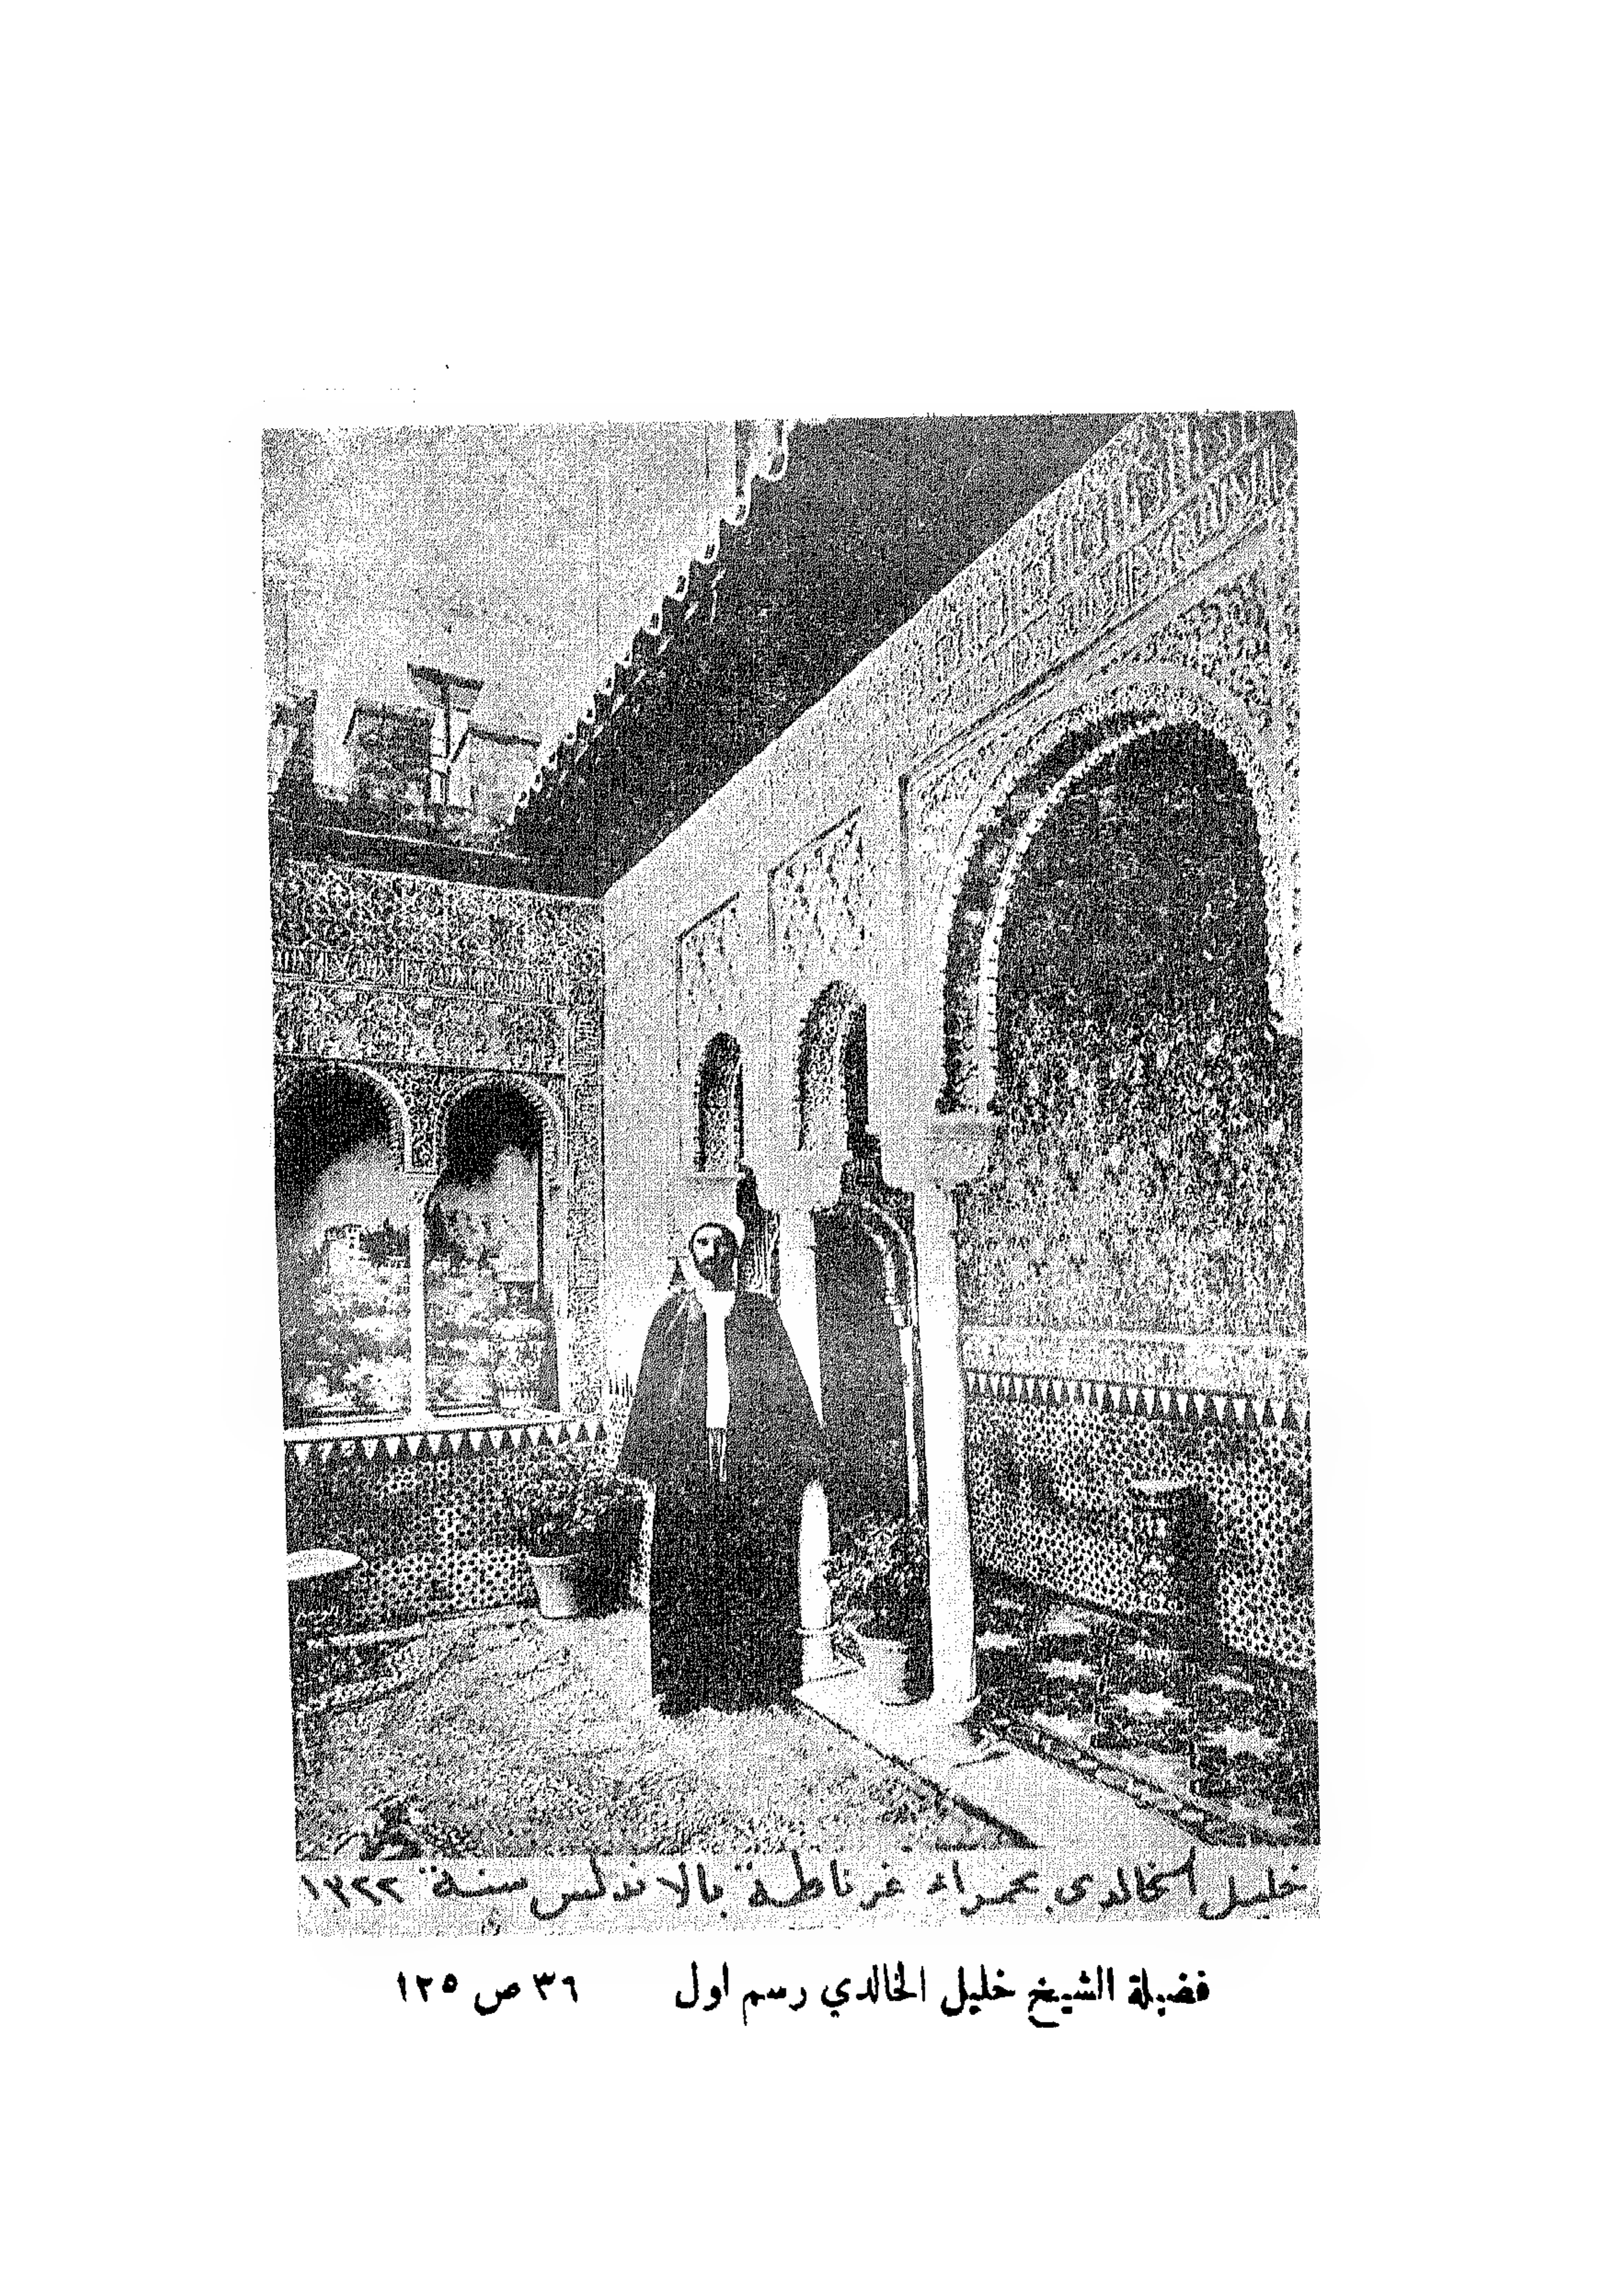 خليل الخالدي بحمراء غرناطة بالاندلس سنة ١٣٢٢
فضيلة الشيخ خليل الخالدي رسم اول ٣٦ ص ١٢٥